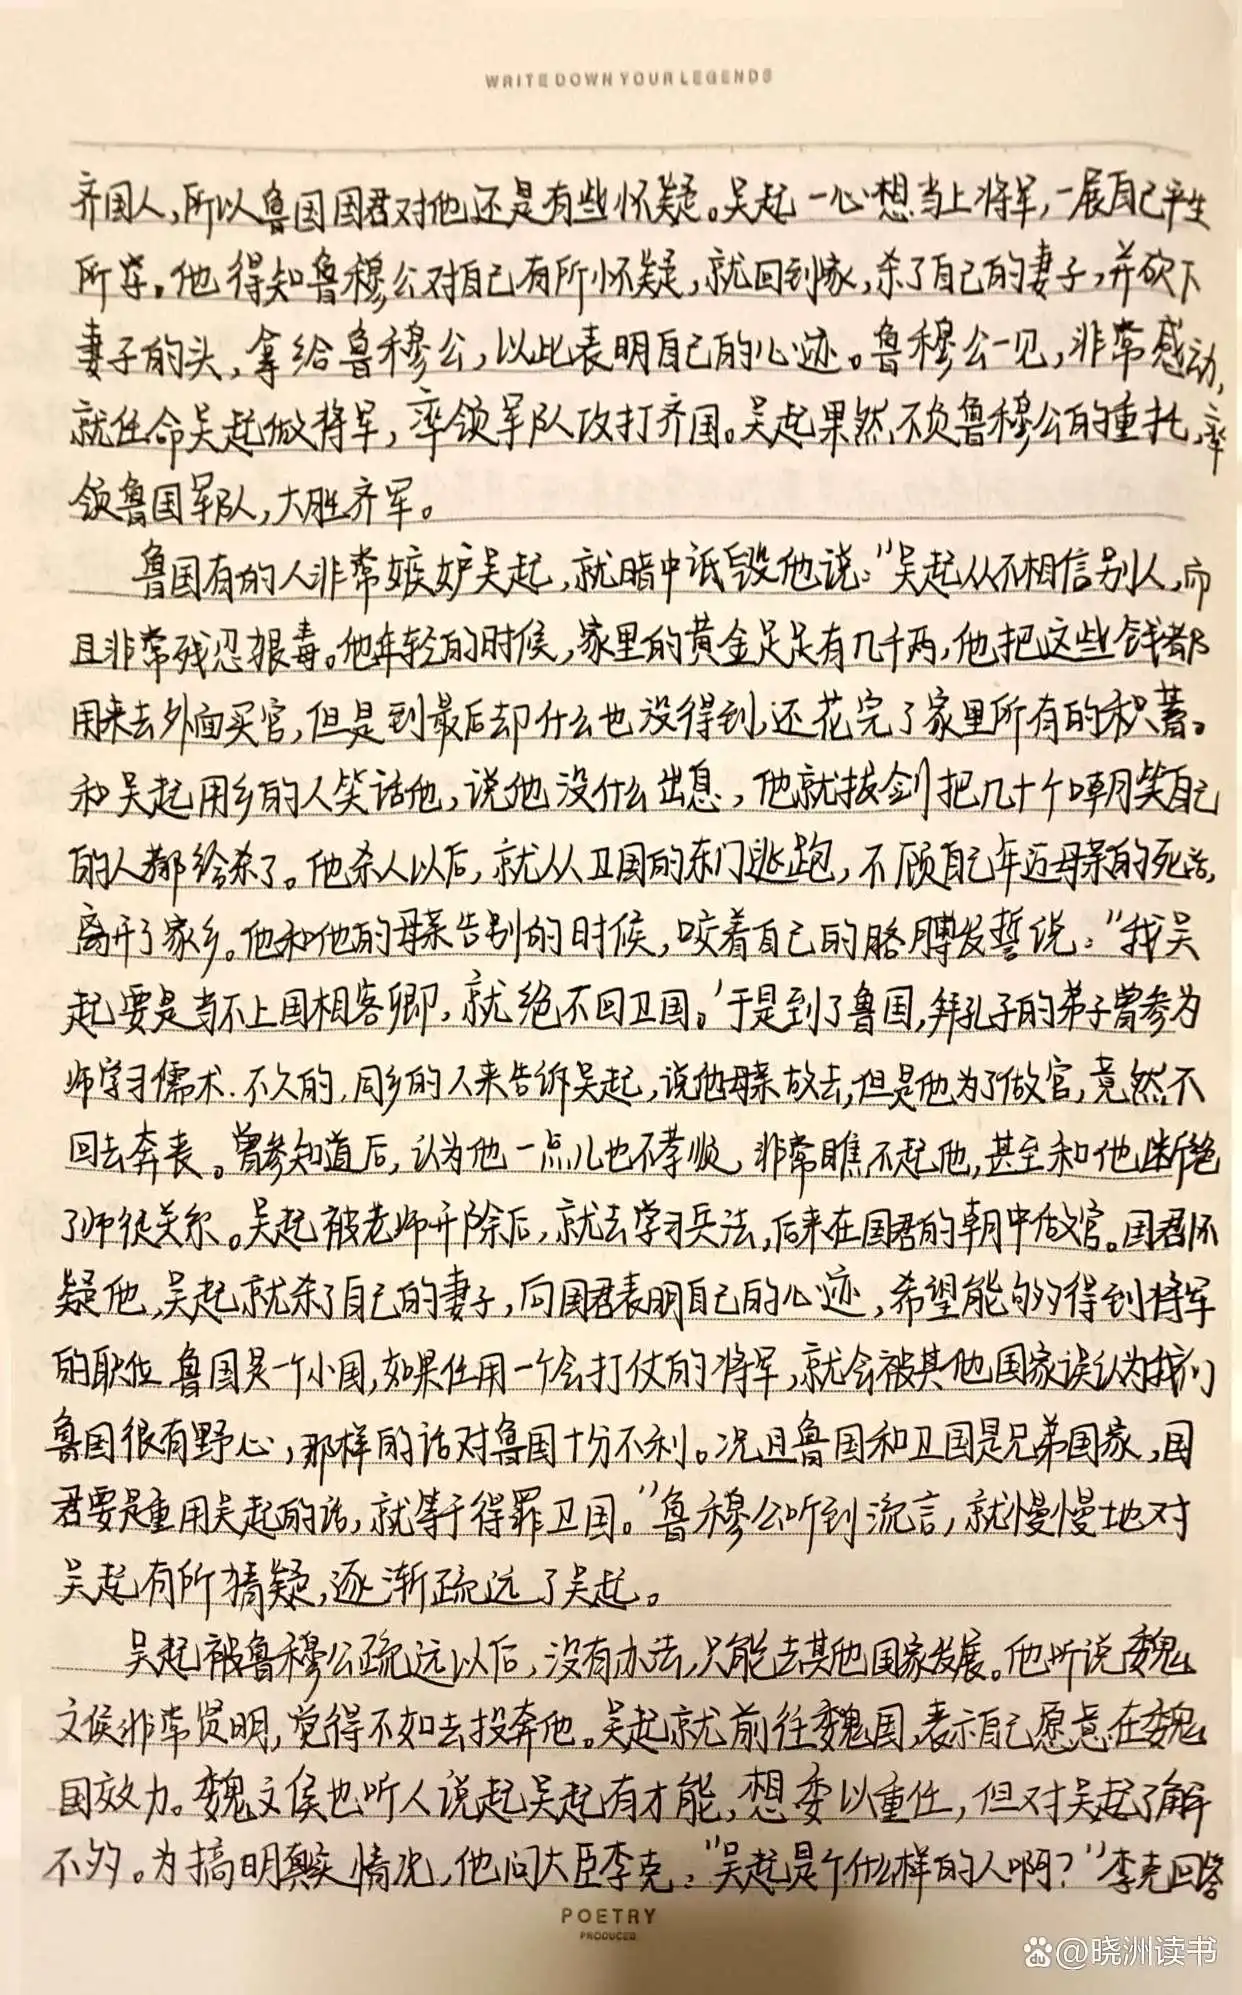 WRITE DOWN YOUR LEGENDS
齐国人,所以鲁国国君对他还是有些怀疑。吴起一心想当上将军,一展自己平生
所学。他得知鲁穆公对自己有所怀疑,就回到家,杀了自己的妻子,并砍下
妻子的头,拿给鲁穆公,以此表明自己的心迹。鲁穆公一见,非常感动,
就任命吴起做将军,率领军队攻打齐国。吴起果然不负鲁穆公的重托,率
领鲁国军队,大胜齐军。
鲁国有的人非常嫉妒吴起,就暗中诋毁他说:"吴起从不相信别人,而
且非常残忍狠毒。他年轻的时候,家里的黄金足足有几千两,他把这些钱都
用来去外面买官,但是到最后却什么也没得到,还花完了家里所有的积蓄。
和吴起用乡的人笑话他,说他没什么出息,他就拔剑把几十个嘲笑自己
的人都给杀了。他杀人以后,就从卫国的东门逃跑,不顾自己年迈母亲的死活,
离开了家乡。他和他的母亲告别的时候,咬着自己的胳膊发誓说:"我吴
起要是当不上国相客卿,就绝不回卫国。'于是到了鲁国,拜孔子的弟子曾参为
师学习儒术.不久的,同乡的人来告诉吴起,说他母亲故去,但是他为了做官,竟然不
回去奔丧。曾参知道后,认为他一点儿也不孝顺,非常瞧不起他,甚至和他断绝
了师徒关系。吴起被老师开除后,就去学习兵法,后来在国君的朝中做官。国君怀
疑他,吴起就杀了自己的妻子,向国君表明自己的心迹,希望能够得到将军
的职位 鲁国是一个小国,如果任用一个会打仗的将军,就会被其他国家误认为我们
鲁国很有野心,那样的话对鲁国十分不利。况且鲁国和卫国是兄弟国家,国
君要是重用吴起的话,就等于得罪卫国。"鲁穆公听到流言,就慢慢地对
吴起有所猜疑,逐渐疏远了吴起。
吴起被鲁穆公疏远以后,没有办法,只能去其他国家发展。他听说魏
文侯非常贤明,觉得不如去投奔他。吴起就前往魏国,表示自己愿意在魏
国效力。魏文侯也听人说起吴起有才能,想委以重任,但对吴起了解
不够。为搞明真实情况,他问大臣李克:"吴起是个什么样的人啊?"李克回答
POETRY
PRODUCED
@晓洲读书